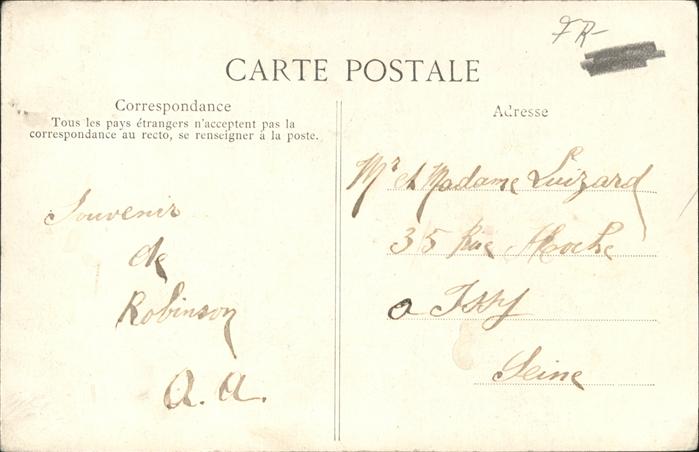 FR-
CARTE POSTALE
Correspondance
Tous les pays étrangers n'acceptent pas la
correspondance au recto, se renseigner à la poste.
Souvenir
de
Robinson
A. A.
Adresse
Mr et Madame Luizard
35 Rue Hoche
a Issy
Seine